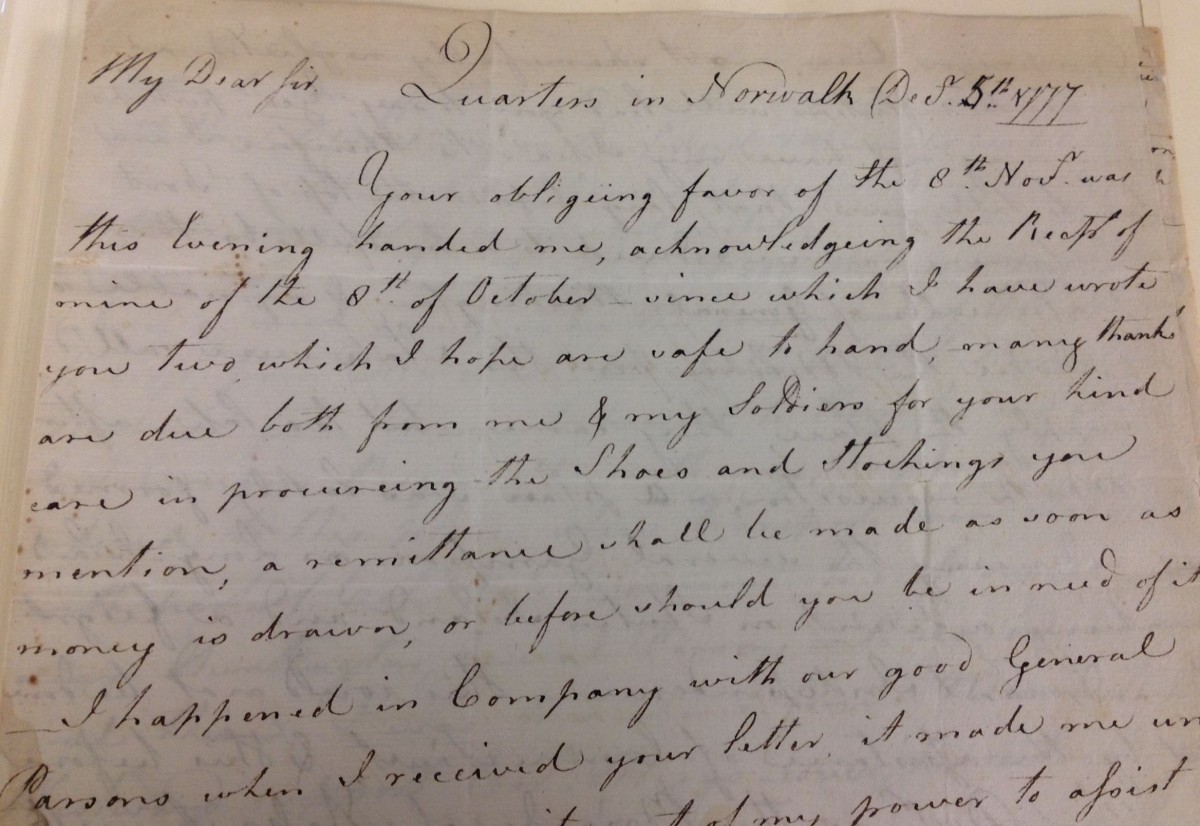 My Dear Sir. Quarters in Norwalk Decr. 5th 1777
Your obligeing favor of the 8th. Novr. was
this Evening handed me, acknowledgeing the Recpt of
mine of the 8th. of October – since which I have wrote
you two, which I hope are safe to hand, many thanks
are due both from me & my Soldiers for your kind
care in procureing the Shoes and Stockings you
mention, a remittance shall be made as soon as
money is drawn, or before should you be in need of it
– I happened in Company with our good General
Parsons when I received your letter. it made me un
of my power to assist